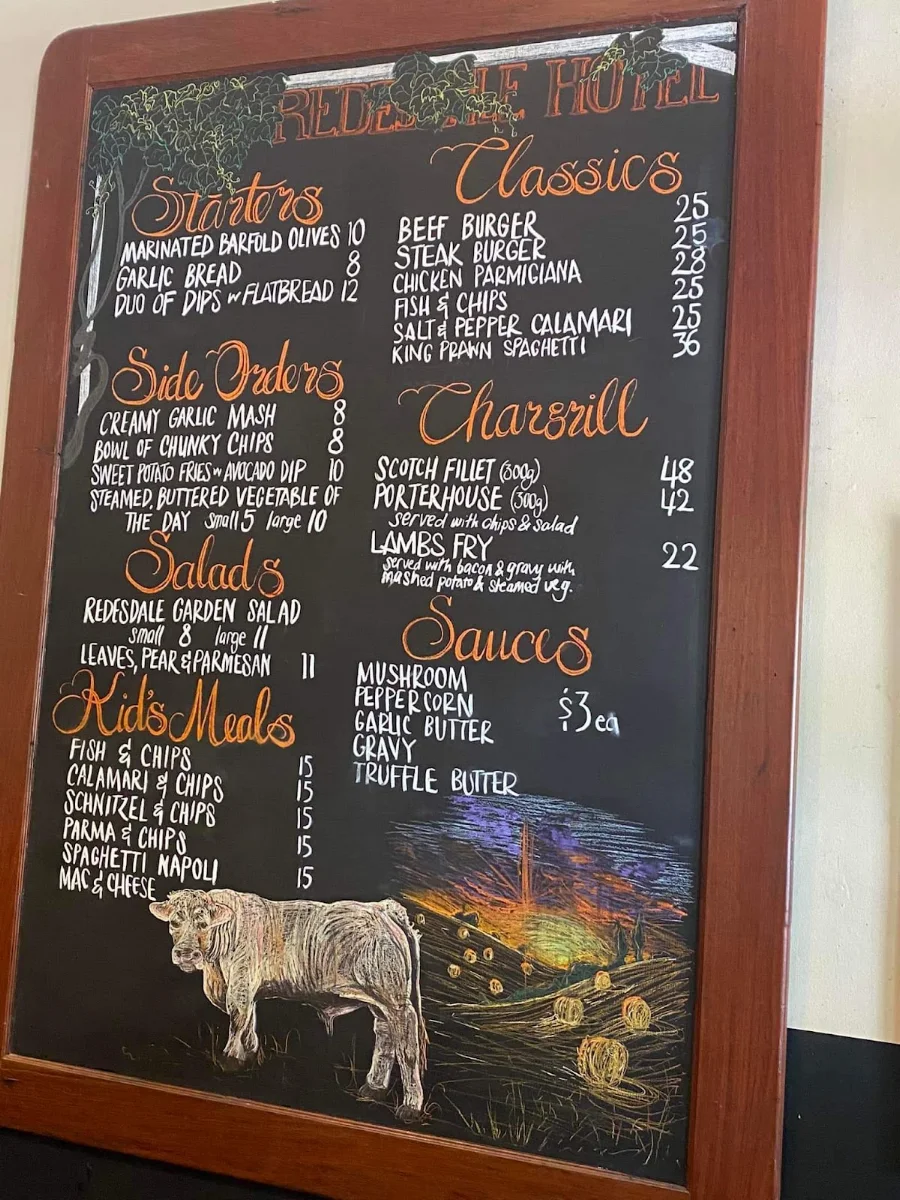 REDESDALE HOTEL
Starters
MARINATED BARFOLD OLIVES 10
GARLIC BREAD 8
DUO OF DIPS w FLATBREAD 12
Side Orders
CREAMY GARLIC MASH 8
BOWL OF CHUNKY CHIPS 8
SWEET POTATO FRIES w AVOCADO DIP 10
STEAMED, BUTTERED VEGETABLE OF
THE DAY small 5 large 10
Salads
REDESDALE GARDEN SALAD
small 8 large 11
LEAVES, PEAR & PARMESAN 11
Kid's Meals
FISH & CHIPS 15
CALAMARI & CHIPS 15
SCHNITZEL & CHIPS 15
PARMA & CHIPS 15
SPAGHETTI NAPOLI 15
MAC & CHEESE
Classics
BEEF BURGER 25
STEAK BURGER 25
CHICKEN PARMIGIANA 28
FISH & CHIPS 25
SALT & PEPPER CALAMARI 25
KING PRAWN SPAGHETTI 36
Chargrill
SCOTCH FILLET (300g) 48
PORTERHOUSE (300g) 42
served with chips & salad
LAMBS FRY 22
served with bacon & gravy with
mashed potato & steamed veg.
Sauces
MUSHROOM
PEPPERCORN $3 ea
GARLIC BUTTER
GRAVY
TRUFFLE BUTTER